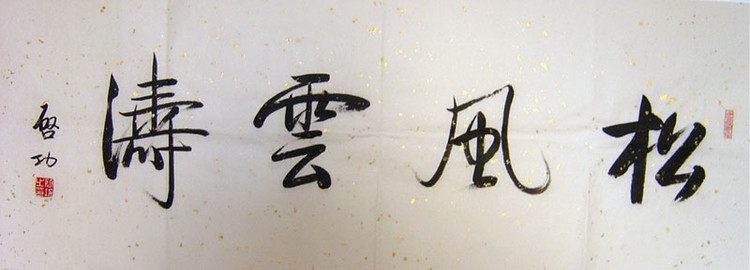 松風雲濤
啓功